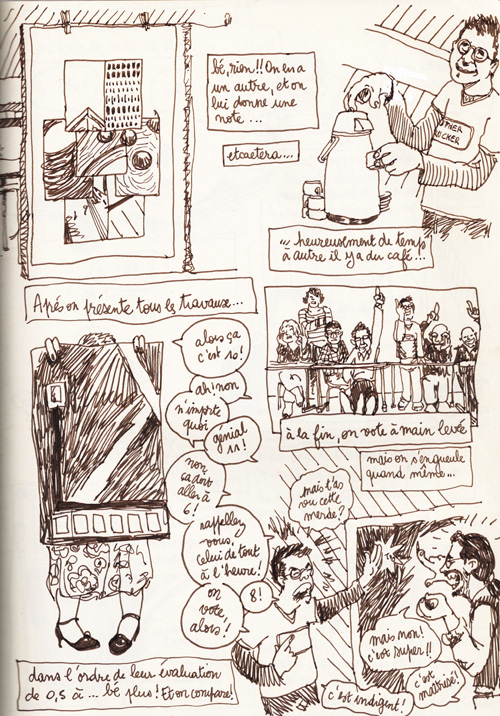 bé, rien!! On en a
un autre, et on
lui donne une
note...
etcaetera...
... heureusement de temps
à autre il y a du café...
Après on présente tous les travaux...
alors ça
c'est 10!
ah! non
n'importe
quoi
génial
11!
non
ça doit
aller à
6!
rappellez
vous,
celui de tout
à l'heure!
on
vote
alors!
8!
dans l'ordre de leur évaluation
de 0,5 à ... bé plus! Et on compare!
à la fin, on vote à main levé
mais on s'engueule
quand même...
mais t'as
vu cette
merde?
mais non!
c'est super!!
c'est indigent!
c'est
maîtrisé!